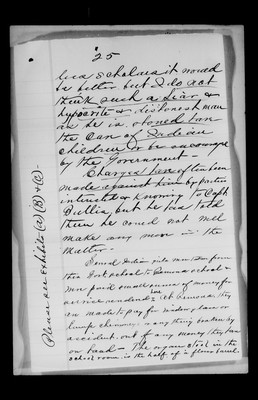 25
be better but I do not
think such a Liar &
hypocrite & dishonest man
as he is should have
the Care of Indian
children & be encouraged
by the Government —
Charges have often been
made against him by parties
interested or knowing to Capt
but he has told
them he could not well
make any move in the
matter —
Several Indian girls were taken from
this school to school &
were paid small sums of money for
service rendered at they
are made to pay for
lamp chimneys or any thing broken by
accident out of any money they have
on hand — The organ stool in the
school room is the half of a flour barrel
Please see exhibits (A) (B) & (C) —